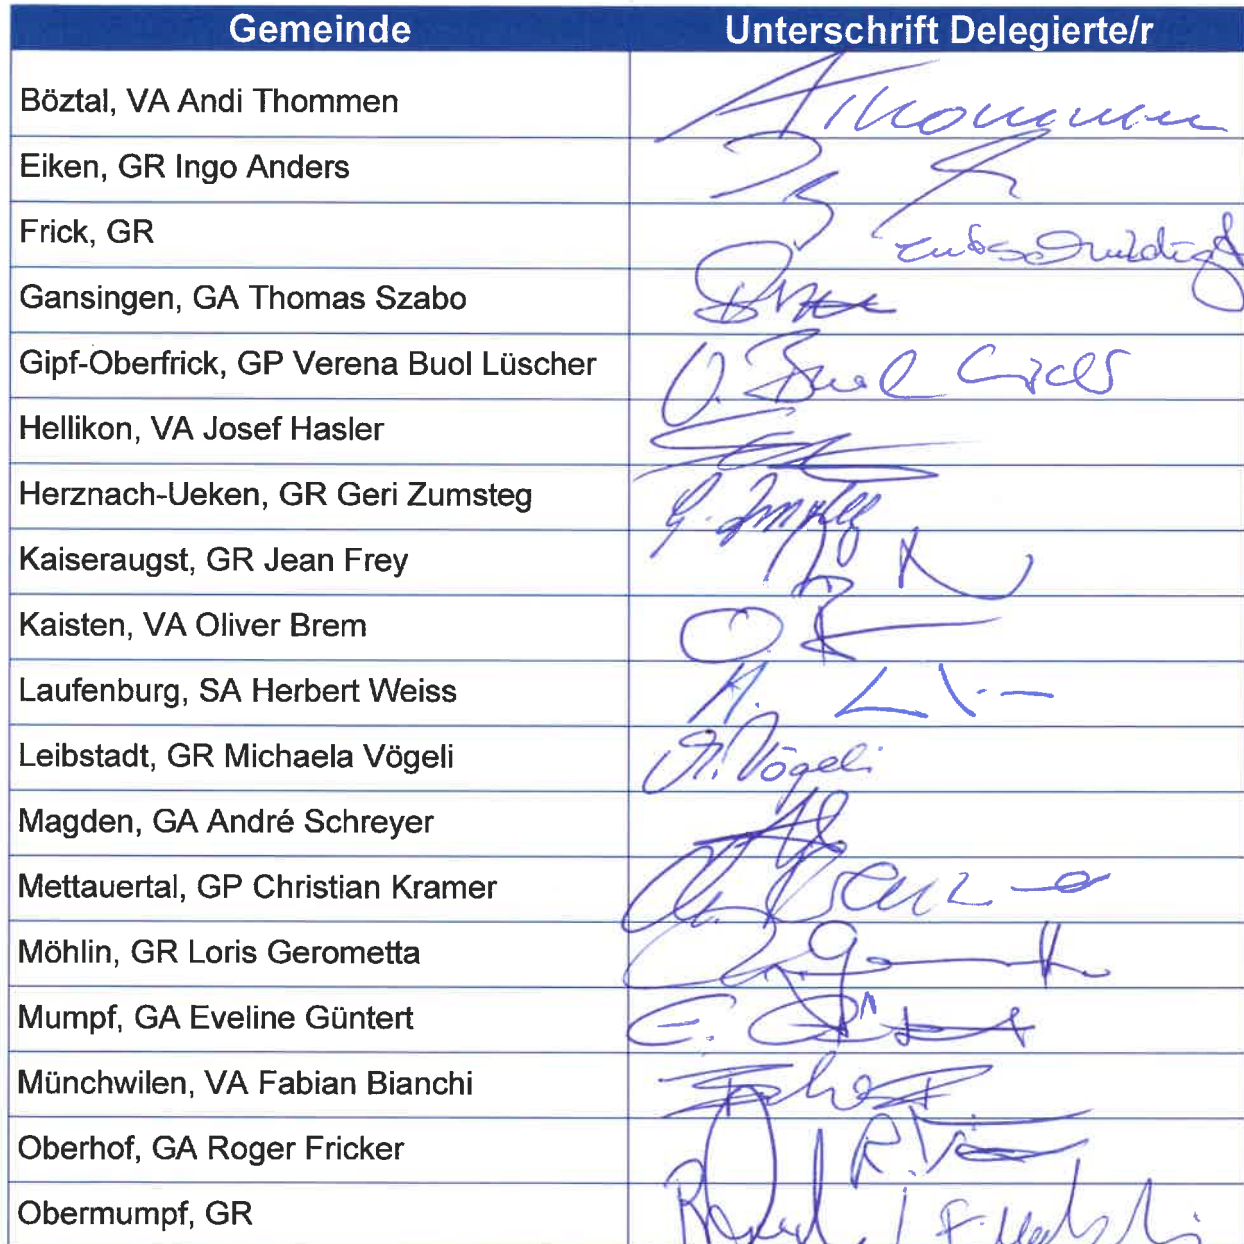 Gemeinde Unterschrift Delegierte/r
Böztal, VA Andi Thommen Thommen
Eiken, GR Ingo Anders
Frick, GR entschuldigt
Gansingen, GA Thomas Szabo
Gipf-Oberfrick, GP Verena Buol Lüscher V. Buol
Hellikon, VA Josef Hasler
Herznach-Ueken, GR Geri Zumsteg G. Zumsteg
Kaiseraugst, GR Jean Frey
Kaisten, VA Oliver Brem
Laufenburg, SA Herbert Weiss H.
Leibstadt, GR Michaela Vögeli M. Vögeli
Magden, GA André Schreyer
Mettauertal, GP Christian Kramer
Möhlin, GR Loris Gerometta
Mumpf, GA Eveline Güntert E.
Münchwilen, VA Fabian Bianchi
Oberhof, GA Roger Fricker R.
Obermumpf, GR